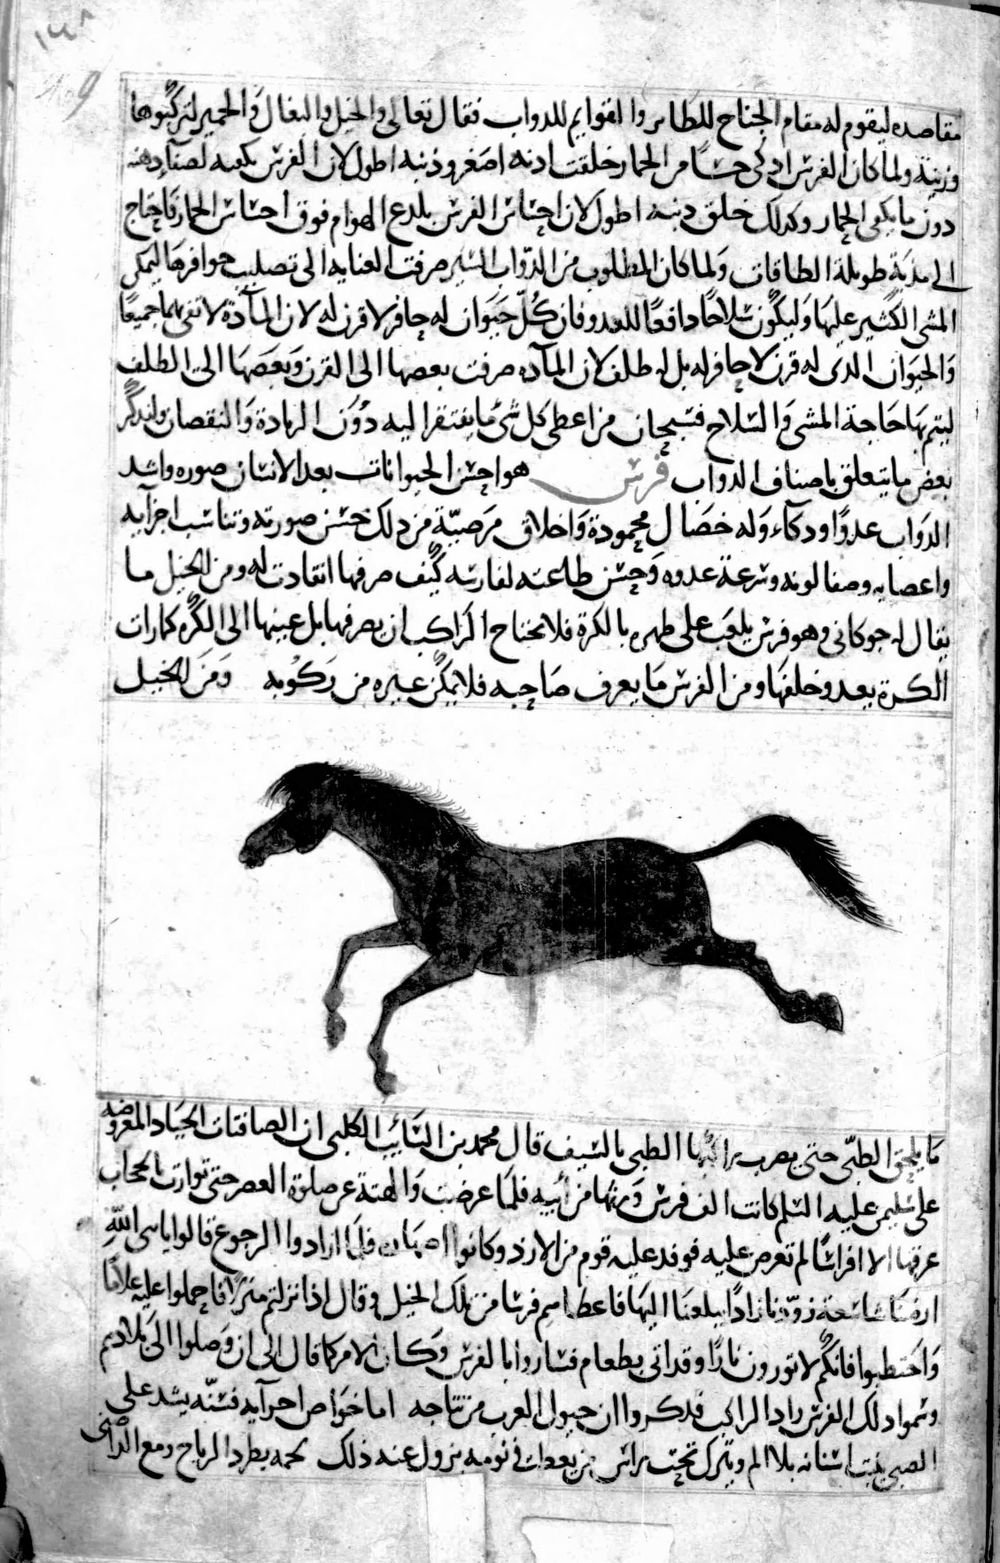 ١٤٨
مقاصده ليقوم له مقام الجناح للطاير والقوايم للدواب فقال تعالى والخيل والبغال والحمير لتركبوها
وزينة ولما كان الفرس اذكى حسا من الحمار خلقت اذنه اصغر وذنبه اطول لان الفرس يكفيه لصفا ذهنه
دون ما يكفي الحمار وكذلك خلق ذنبه اطول لان احساس الفرس بلدغ الهوام فوق احساس الحمار فاحتاج
الى مذبة طويلة الطاقات ولما كان المطلوب من الدواب السير صرفت العنايه الى تصليب حوافرها ليمكن
المشي الكثير عليها وليكون سلاحا دافعا للعدو فان كل حيوان له حافر لا قرن له لان المادة لا تفي بهما جميعا
والحيوان الذي له قرن لا حافر له بل له ظلف لان الماده صرفت بعضها الى القرن وبعضها الى الظلف
ليتم بها حاجة المشي والسلاح فسبحان من اعطى كل شي ما يفتقر اليه دون الزيادة والنقصان ولنذكر
بعض ما يتعلق باصناف الدواب فرس هو احسن الحيوانات بعد الانسان صوره واشد
الدواب عدوا وذكاء وله خصال محمودة واخلاق مرضية من ذلك حسن صورته وتناسب اجزايه
واعضايه وصفا لونه وسرعة عدوه وحسن طاعته لفارسه كيف صرفها انقادت له ومن الخيل ما
يقال له جوكاني وهو فرس يلعب على ظهره بالكرة فلا يحتاج الراكب ان يصرفها بل عينها الى الكره كما رات
الكرة يعدو خلفها ومن الفرس ما يعرف صاحبه فلا يمكن غيره من ركوبه ومن الخيل
ما يلحق الظبي حتى يضرب راكبها الظبي بالسيف قال محمد بن السايب الكلبي ان الصافنات الجياد المعروضه
على سليمن عليه السلم كانت الف فرس ورثها من ابيه فلما عرضت والهته عن صلوة العصر حتى توارت بالحجاب
عرقبها الا افراسا لم تعرض عليه فوفد عليه قوم من الازد وكانوا اصهاره فلما ارادوا الرجوع قالوا يا نبي الله
ارضنا شاسعة زودنا زادا يبلغنا اليها فاعطاهم فرسا من تلك الخيل وقال اذا نزلتم منزلا فاحملوا عليه غلاما
واحتطبوا فانكم لا تورون نارا وقد اتى بطعام فساروا بالفرس وكان الامر كما قال الى ان وصلوا الى بلادهم
وسموا ذلك الفرس زاد الراكب فذكروا ان خيول العرب من نتاجه اما خواص اجزايه فسنه يشد على
الصبي ينبت اسنانه بلا الم ويترك تحت راس من يغط في نومه يزول عنه ذلك لحمه يطرد الرياح